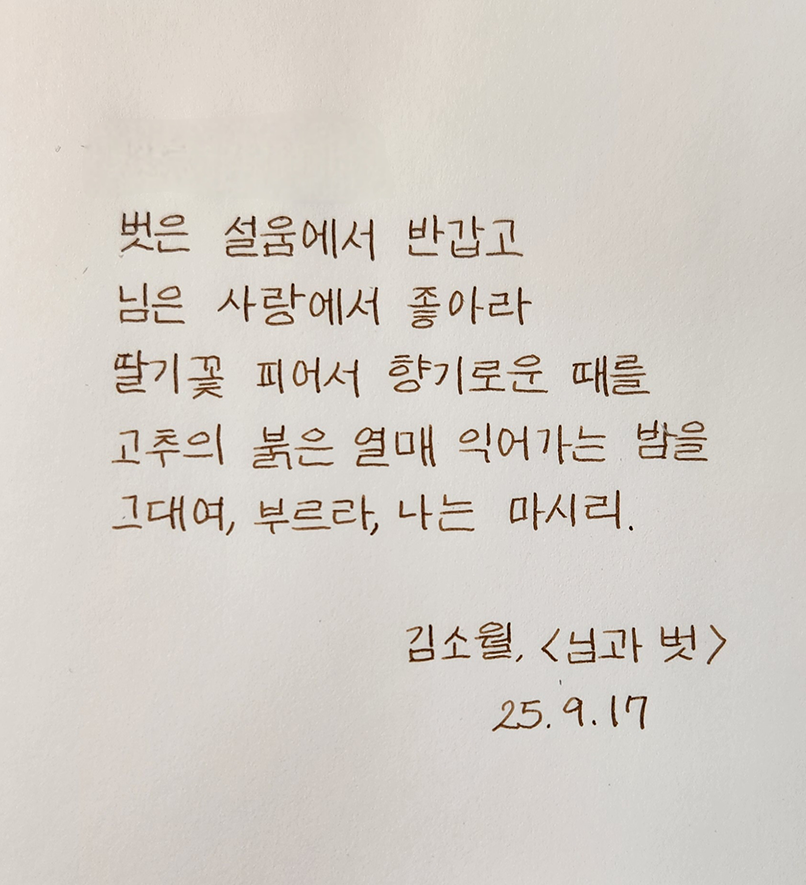 벗은 설움에서 반갑고
님은 사랑에서 좋아라
딸기꽃 피어서 향기로운 때를
고추의 붉은 열매 익어가는 밤을
그대여, 부르라, 나는 마시리.
김소월, <님과 벗>
25.9.17